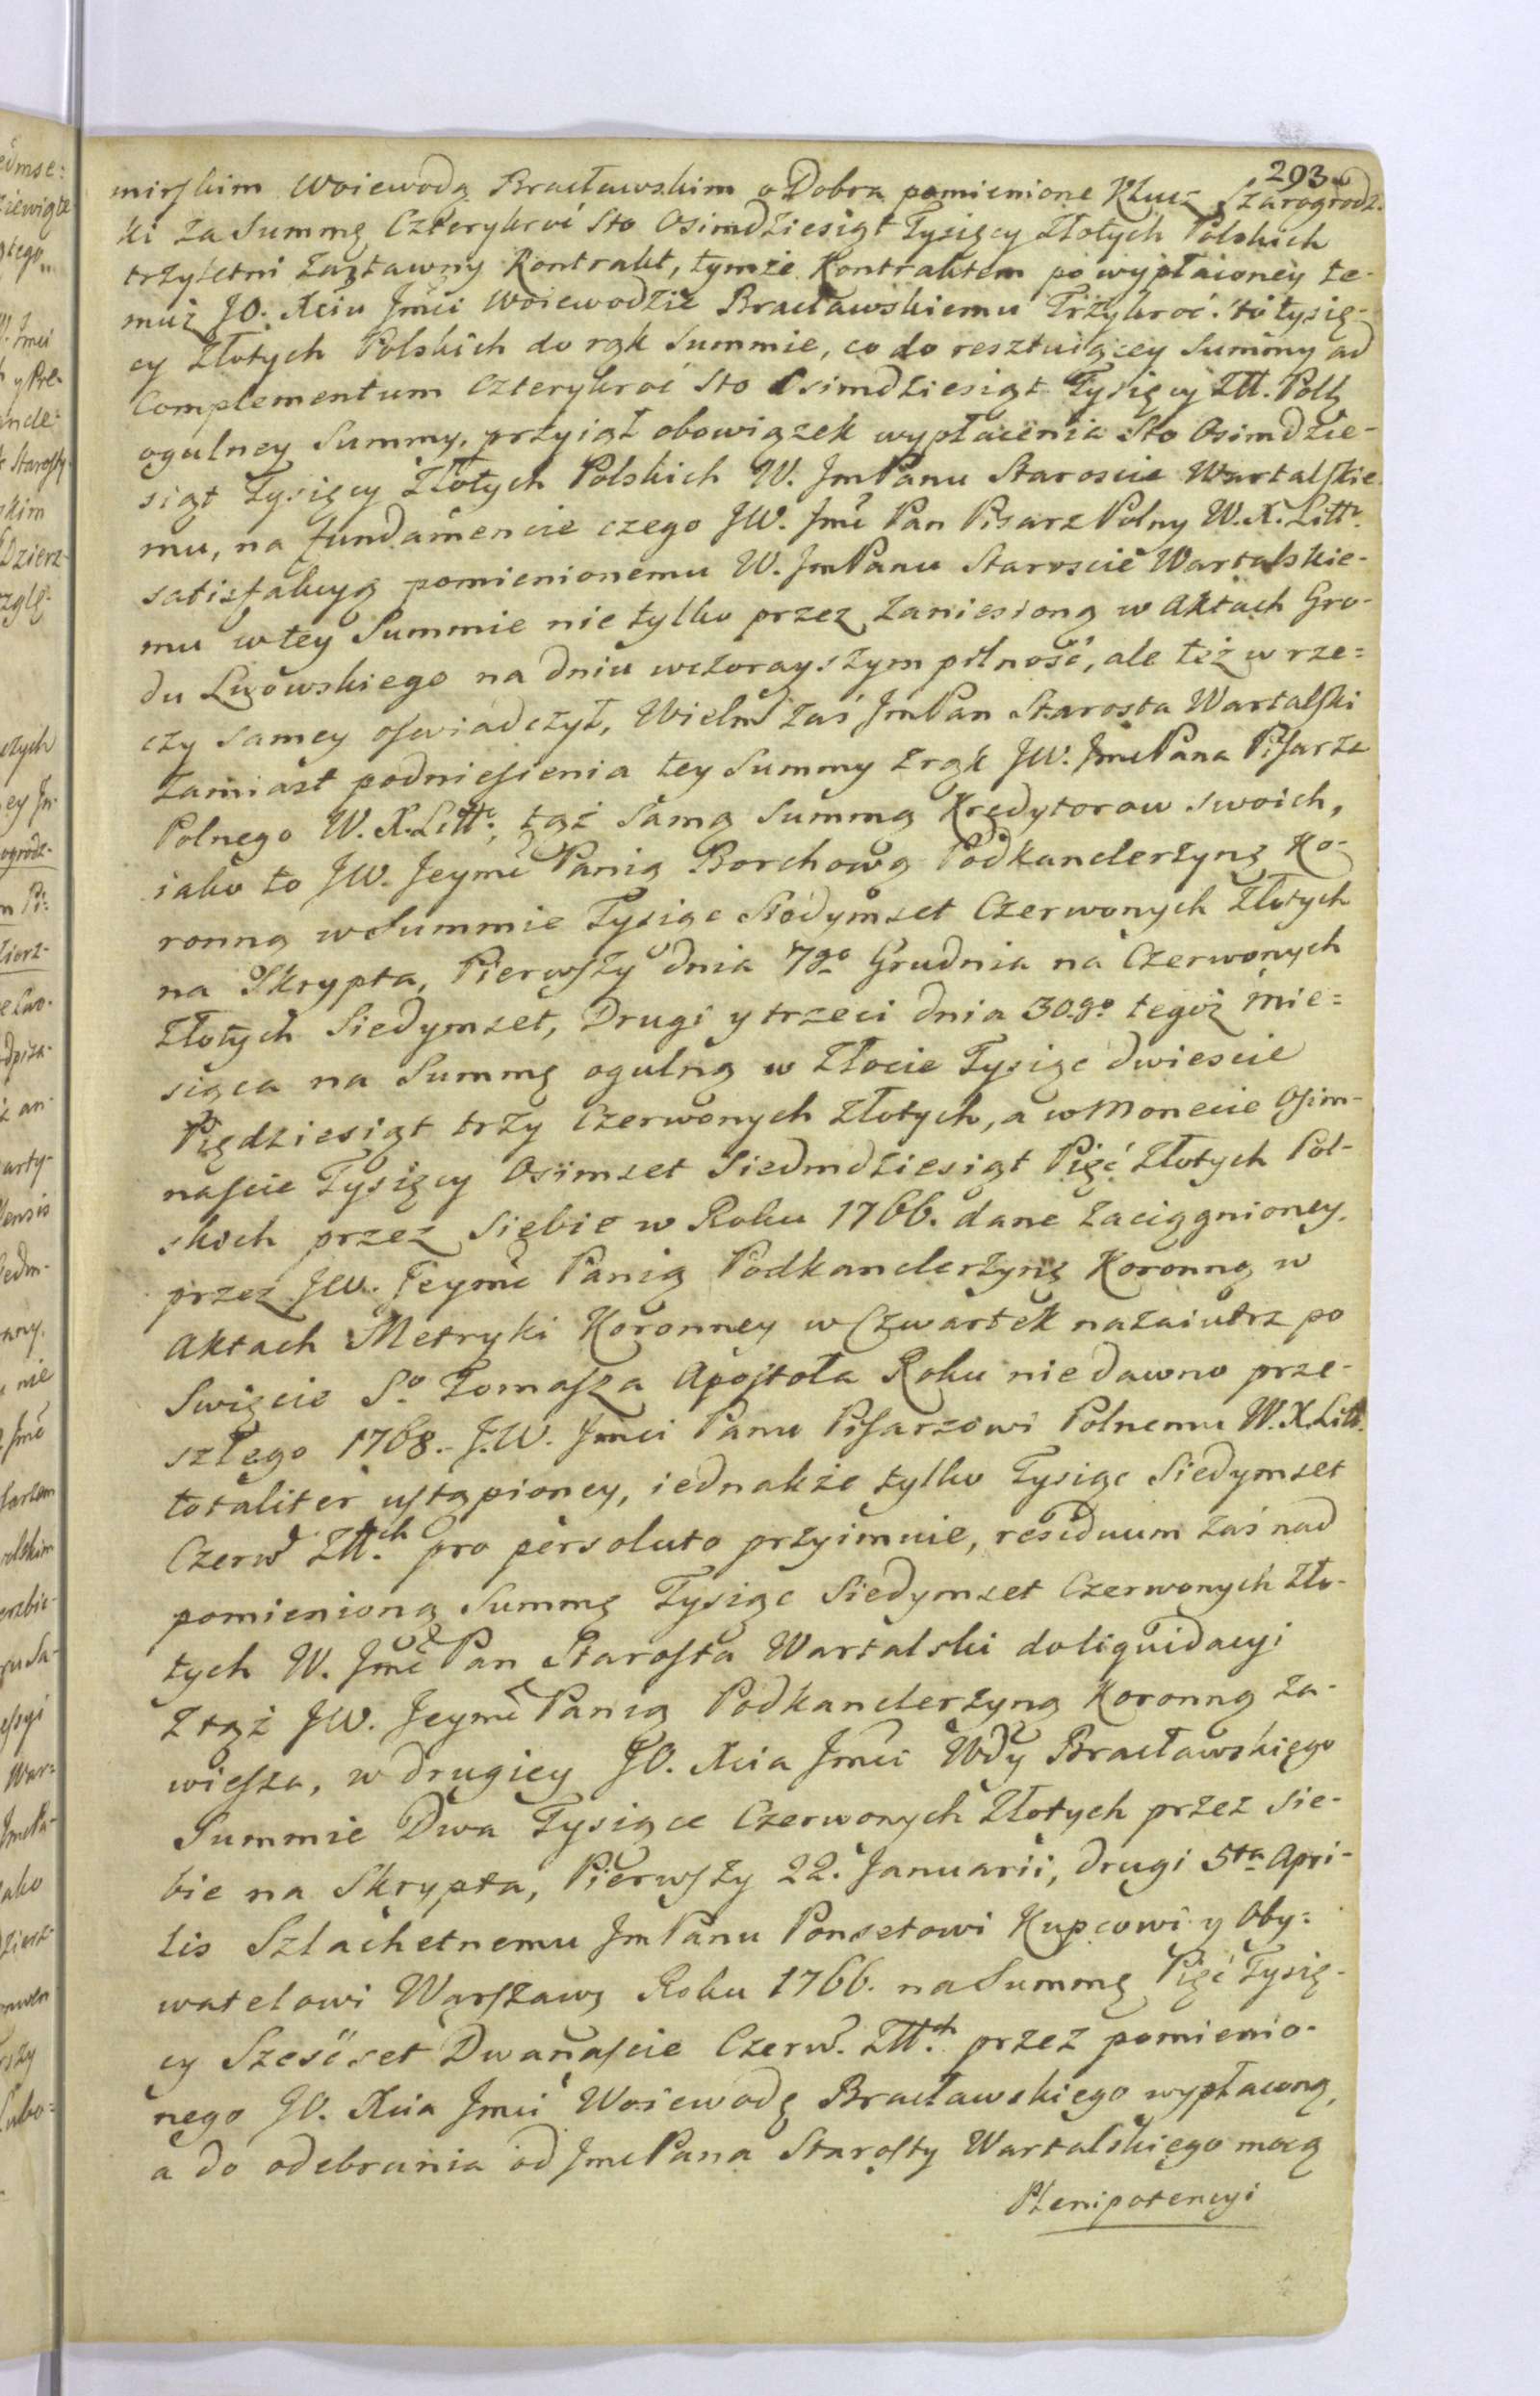 293.
mirskim Woiewodą Bracławskim o Dobra pomienione Klucz Szarogrodz-
ki za Summę Czterykroć Sto Osimdziesiąt Tysięcy Złotych Polskich
trzyletni Zastawny Kontrakt, tymże Kontraktem po wypłaconey te-
muż JO. Xciu Jmći Woiewodzie Bracławskiemu Trzykroć sto tysię-
cy Złotych Polskich do rąk Summie, co do resztuiącey Summy ad
Complementum Czterykroć Sto Osimdziesiąt Tysięcy Złł. Polh
ogulney Summy, przyiął obowiązek wypłacenia Sto Osimdzie-
siąt Tysięcy Złotych Polskich W. JmPanu Staroscie Wartalskie-
mu, na fundamencie czego JW. Jmć Pan Pisarz Polny W. X. Litt.
satisfakcyą pomienionemu W. JmPanu Staroscie Wartalskie-
mu w tey Summie nie tylko przez zaniesioną w Aktach Gro-
du Lwowskiego na dniu wczorayszym pilność, ale też w rze=
czy samey oświadczył, Wielm zaś JmPan Starosta Wartalski
zamiast podniesienia tey Summy z rąk JW. JmcPana Pisarza
Polnego W. X. Litt., tąż samą Summą Kredytorow swoich,
iako to JW. Jeymć Panią Borchową Podkanclerzyną Ko-
ronną w Summie Tysiąc Siedymset Czerwonych Złotych
na Skrypta, Pierwszy dnia 7go Grudnia na Czerwonych
Złotych Siedymset, Drugi y trzeci dnia 30.go tegoż Mie=
siąca na Summę ogulną w Złocie Tysiąc dwiescie
Pięćdziesiąt trzy Czerwonych Złotych, a w Monecie Osim-
nascie Tysięcy Osimset Siedmdziesiąt Pięć Złotych Pol-
skich przez Siebie w Roku 1766. dane zaciągnioney,
przez JW. Jeymć Panią Podkanclerzynę Koronną w
Aktach Metryki Koronney w Czwartek nazaiutrz po
Swięcie So. Tomasza Apostoła Roku niedawno prze-
szłego 1768. J.W. Jmći Panu Pisarzowi Polnemu W. X. Litt.
totaliter ustąpioney, iednakże tylko Tysiąc Siedymset
Czerw Złł.ch pro persoluto przyimuie, residuum zaś nad
pomienioną Summę Tysiąc Siedymset Czerwonych Zło-
tych W. Jmć Pan Starosta Wartalski do liquidacyi
z tąż JW. Jeymć Panią Podkanclerzyną Koronną za-
wiesza, w drugiey JO. Xcia Jmći Wdy Bracławskiego
Summie Dwa Tysiące Czerwonych Złotych przez sie-
bie na Skrypta, Pierwszy 22. Januarii, drugi 5ta Apri-
lis Szlachetnemu JmPanu Ponsetowi Kupcowi y Oby=
watelowi Warszawy Roku 1766. na Summę Pięć Tysię-
cy Szesćset Dwanascie Czerw. Złł.ch przez pomienio-
nego JO. Xcia Jmći Woiewodę Bracławskiego wypłaconą,
a do odebrania od JmcPana Starosty Wartalskiego mocą
Plenipotencyi